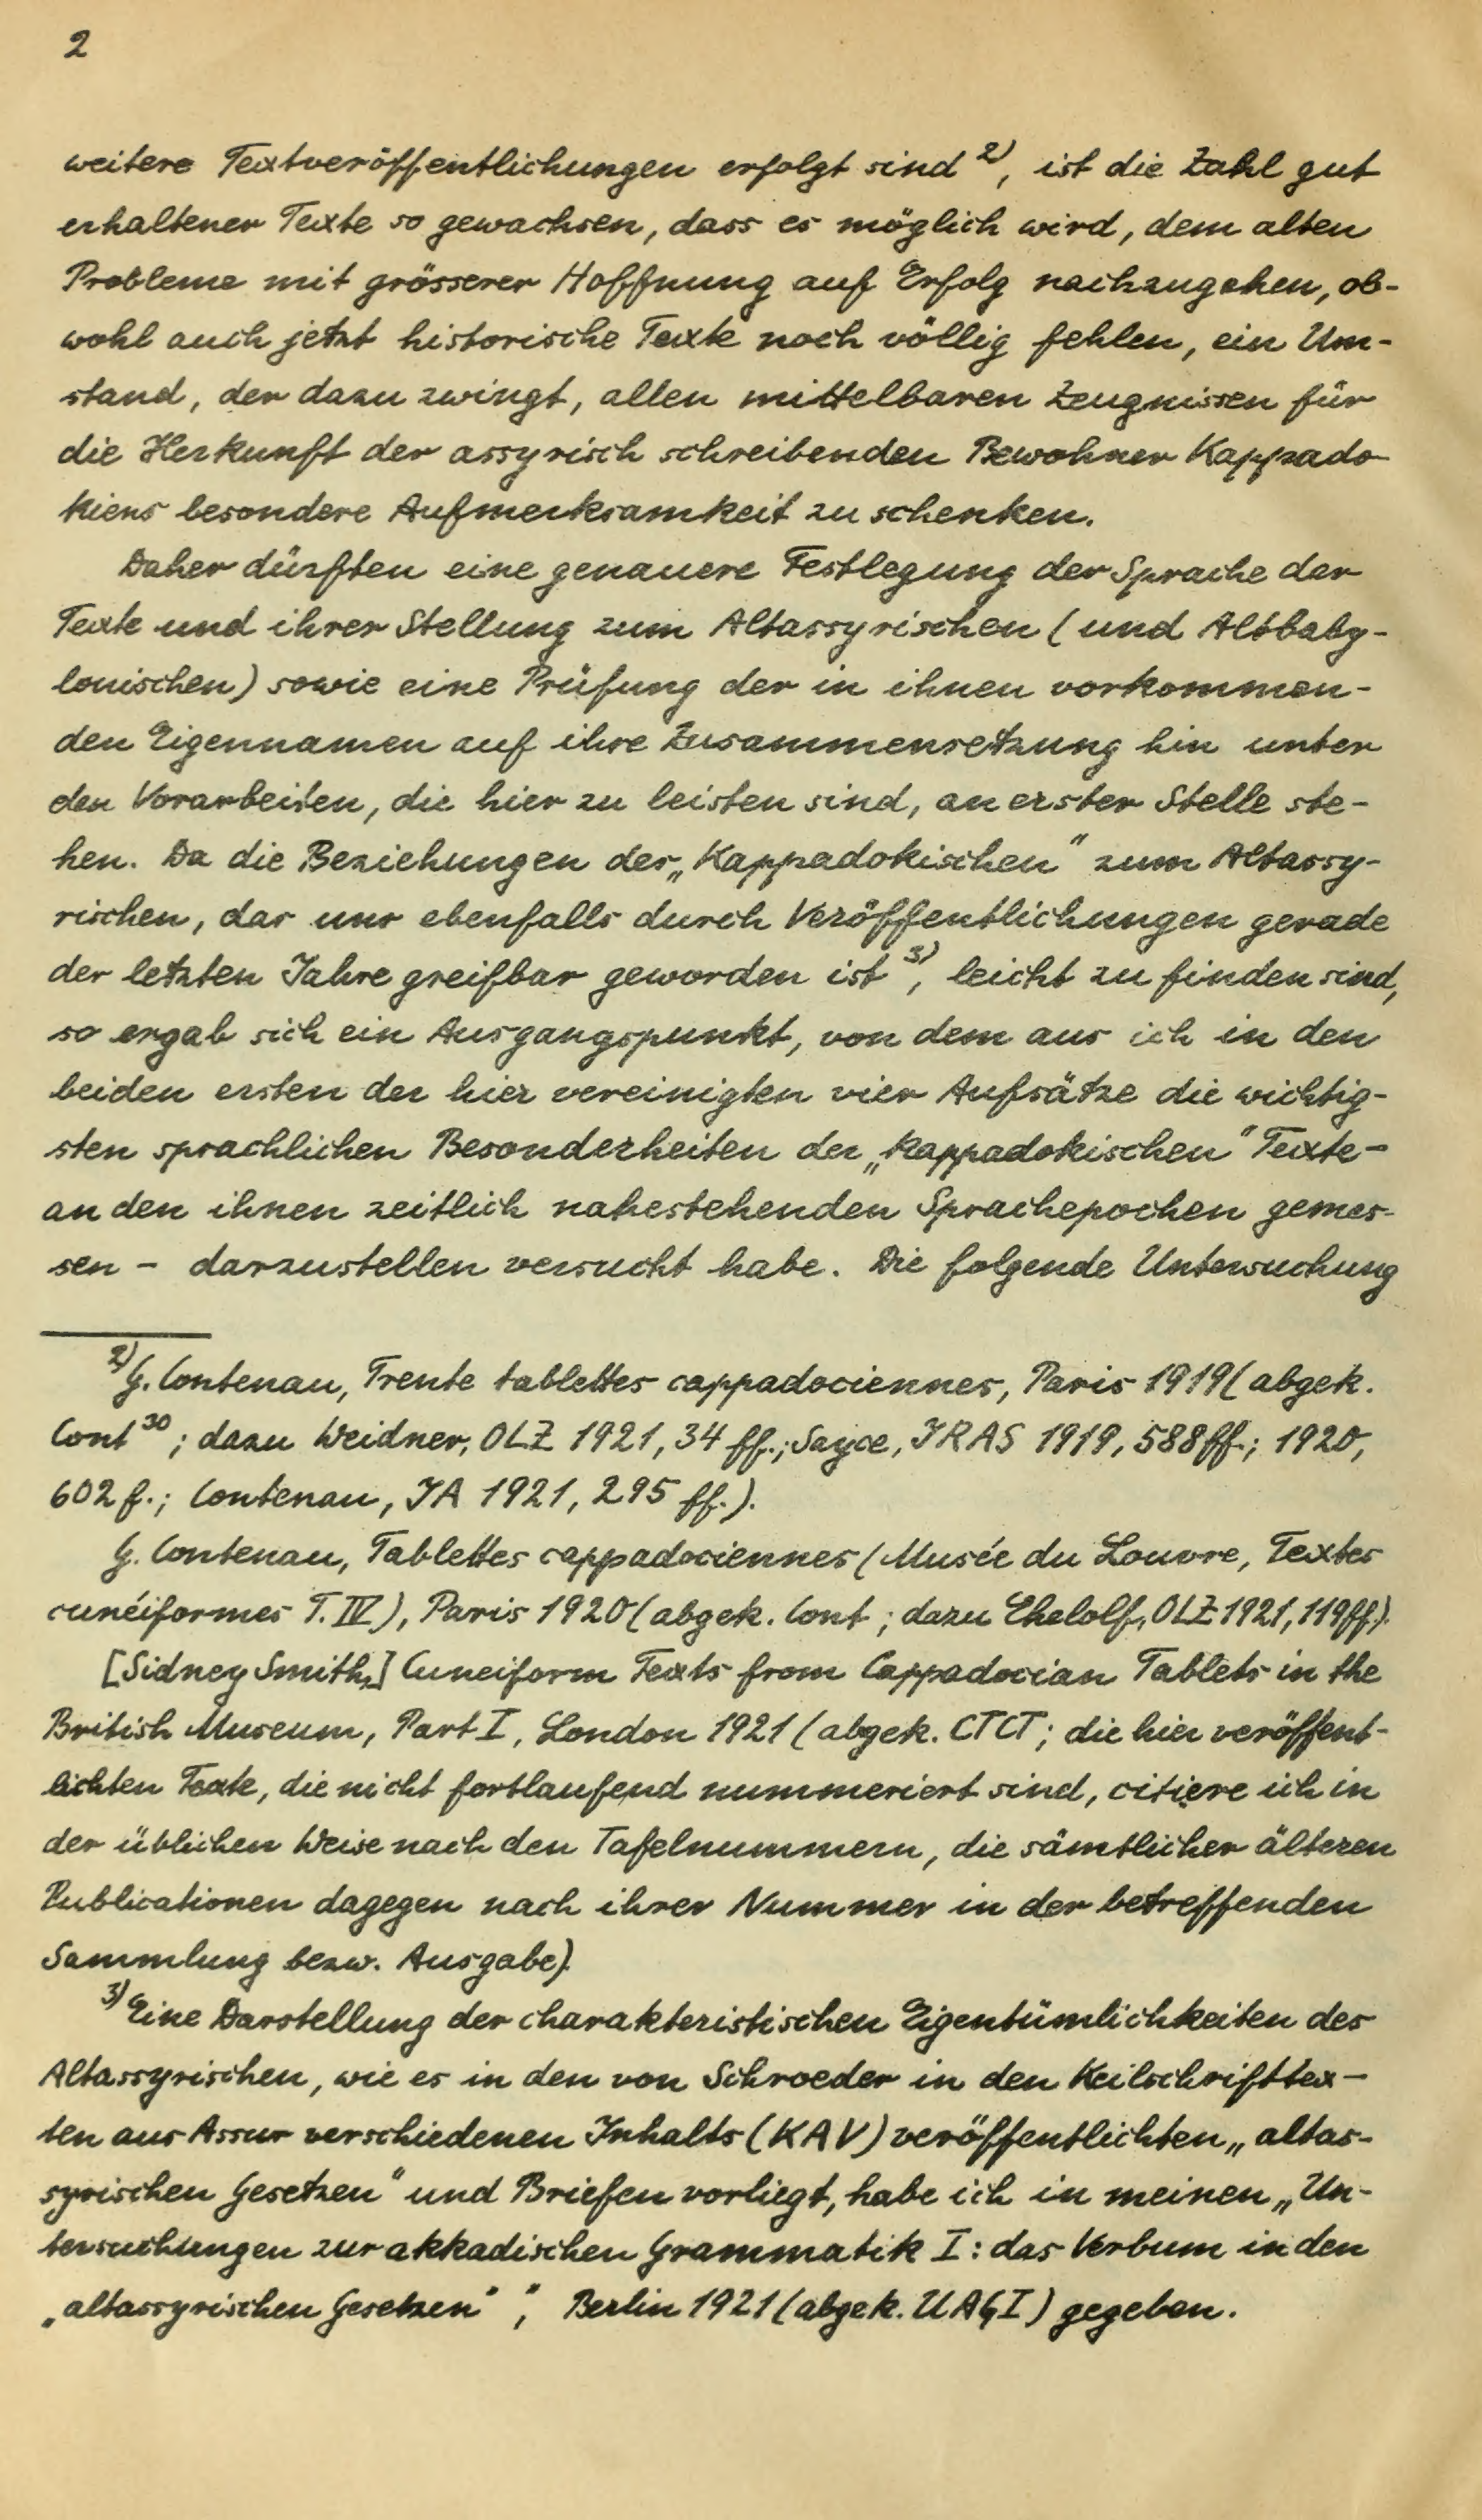 2
weitere Textveröffentlichungen erfolgt sind 2), ist die Zahl gut
erhaltener Texte so gewachsen, dass es möglich wird, dem alten
Probleme mit grösserer Hoffnung auf Erfolg nachzugehen, ob-
wohl auch jetzt historische Texte noch völlig fehlen, ein Um-
stand, der dazu zwingt, allen mittelbaren Zeugnissen für
die Herkunft der assyrisch schreibenden Bewohner Kappado-
kiens besondere Aufmerksamkeit zu schenken.
Daher dürften eine genauere Festlegung der Sprache der
Texte und ihrer Stellung zum Altassyrischen (und Altbaby-
lonischen) sowie eine Prüfung der in ihnen vorkommen-
den Eigennamen auf ihre Zusammensetzung hin unter
den Vorarbeiten, die hier zu leisten sind, an erster Stelle ste-
hen. Da die Beziehungen des „Kappadokischen“ zum Altassy-
rischen, das uns ebenfalls durch Veröffentlichungen gerade
der letzten Jahre greifbar geworden ist 3), leicht zu finden sind,
so ergab sich ein Ausgangspunkt, von dem aus ich in den
beiden ersten der hier vereinigten vier Aufsätze die wichtig-
sten sprachlichen Besonderheiten der „kappadokischen“ Texte -
an den ihnen zeitlich nahestehenden Sprachepochen gemes-
sen - darzustellen versucht habe. Die folgende Untersuchung
2) G. Contenau, Trente tablettes cappadociennes, Paris 1919 (abgek.
Cont³⁰; dazu Weidner, OLZ 1921, 34 ff.; Sayce, JRAS 1919, 588 ff.; 1920,
602 f.; Contenau, JA 1921, 295 ff.).
G. Contenau, Tablettes cappadociennes (Musée du Louvre, Textes
cunéiformes T. IV), Paris 1920 (abgek. Cont; dazu Ehelolf, OLZ 1921, 119 ff.).
[Sidney Smith,] Cuneiform Texts from Cappadocian Tablets in the
British Museum, Part I, London 1921 (abgek. CTCT; die hier veröffent-
lichten Texte, die nicht fortlaufend nummeriert sind, citiere ich in
der üblichen Weise nach den Tafelnummern, die sämtlicher älteren
Publicationen dagegen nach ihrer Nummer in der betreffenden
Sammlung bezw. Ausgabe).
3) Eine Darstellung der charakteristischen Eigentümlichkeiten des
Altassyrischen, wie es in den von Schroeder in den Keilschrifttex-
ten aus Assur verschiedenen Inhalts (KAV) veröffentlichten „altas-
syrischen Gesetzen“ und Briefen vorliegt, habe ich in meinen „Un-
tersuchungen zur akkadischen Grammatik I: das Verbum in den
„altassyrischen Gesetzen“ “, Berlin 1921 (abgek. UAG I) gegeben.